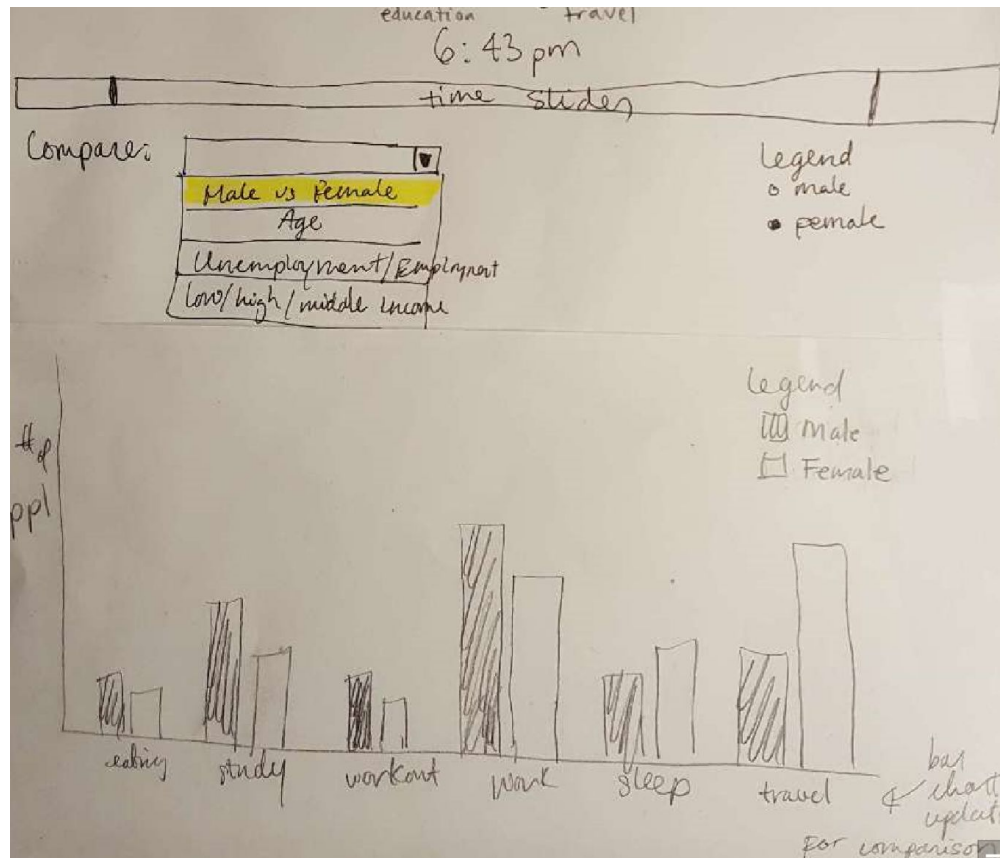 education travel
6:43 pm
time slider
Compare:
Male vs Female
Age
Unemployment/Employment
low/high/middle income
Legend
male
female
Legend
Male
Female
# of
ppl
eating study workout work sleep travel
bar
chart
updates
for comparison